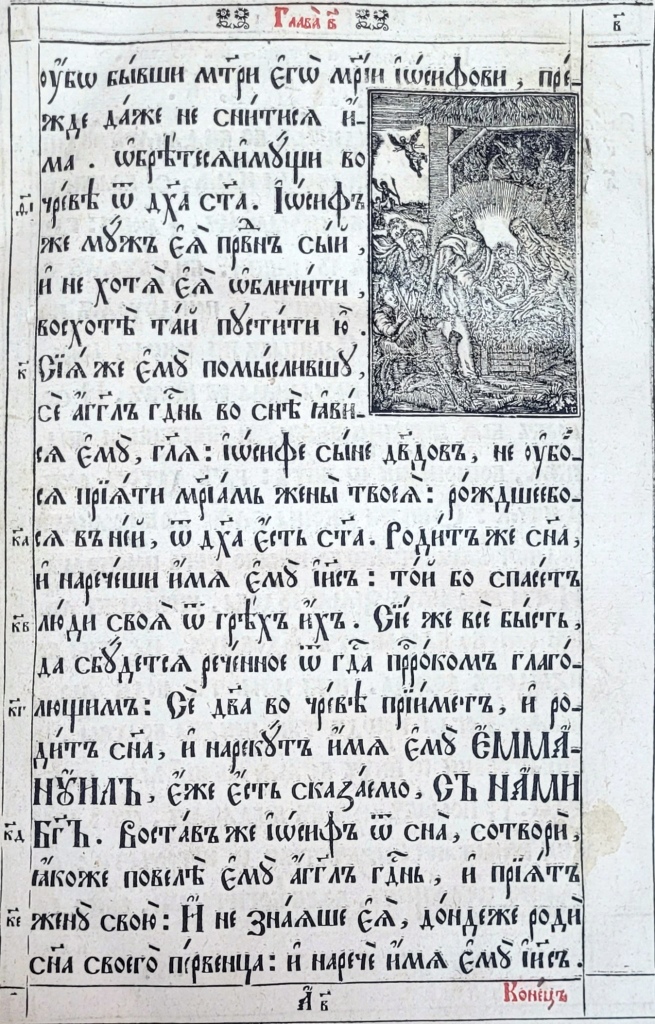 Глава̀ в҃ в҃
ᲂу҆́бѡ бы́вши мт҃ри є҆гѡ̀ мр҃і́и і҆ѡ́сифови , пре́-
жде да́же не сни́тисѧ и҆́-
ма . ѡ҆брѣ́тесѧ и҆му́щи во
ѳ҃і чре́вѣ ѿ дх҃а ст҃а . І҆ѡ́сифъ
же мꙋ́жъ є҆ѧ̀ пра́вⷣнъ сы́й ,
и҆ не хотѧ̀ є҆ѧ̀ ѡ҆бличи́ти ,
восхотѣ̀ та́й пꙋсти́ти ю҆̀ .
к҃ Сїѧ́ же є҆мꙋ̀ помы́слившꙋ ,
сѐ а҆́гг҃лъ гдⷭ҇нь во снѣ̀ ꙗ҆ви́-
сѧ є҆мꙋ̀ , гл҃ѧ : і҆ѡ́сифе сы́не дв҃довъ , не ᲂу҆бо́-
сѧ прїѧ́ти мр҃їа́мъ жены̀ твоеѧ̀ : ро́ждшеебо-
к҃а сѧ въ не́й , ѿ дх҃а є҆́сть ст҃а . Роди́тъ же сн҃а ,
и҆ нарече́ши и҆́мѧ є҆мꙋ̀ і҆и҃съ : то́й бо спасе́тъ
к҃в лю́ди своѧ̀ ѿ грѣ̑хъ и҆́хъ . Сїе́ же всѐ бы́сть ,
да сбꙋ́детсѧ рече́нное ѿ гдⷭ҇а прⷪ҇ро́комъ глаго́-
к҃г лющимъ : Сѐ дв҃а во чре́вѣ прїи́метъ , и҆ ро-
ди́тъ сн҃а , и҆ нарекꙋ́тъ и҆́мѧ є҆мꙋ̀ Є҆ММА-
НꙊ́ИЛЪ , є҆́же є҆́сть сказа́емо , СЪ НА́МИ
к҃д БГ҃Ъ . Воста́въ же і҆ѡ́сифъ ѿ сна̀ , сотворѝ ,
ꙗ҆́коже повелѣ̀ є҆мꙋ̀ а҆́гг҃лъ гдⷭ҇нь , и҆ прїѧ́тъ
к҃е женꙋ̀ свою̀ : И҆ не зна́ѧше є҆ѧ̀ , до́ндеже родѝ
сн҃а своего̀ пе́рвенца : и҆ наречѐ и҆́мѧ є҆мꙋ̀ і҆и҃съ .
А҃ в Коне́цъ